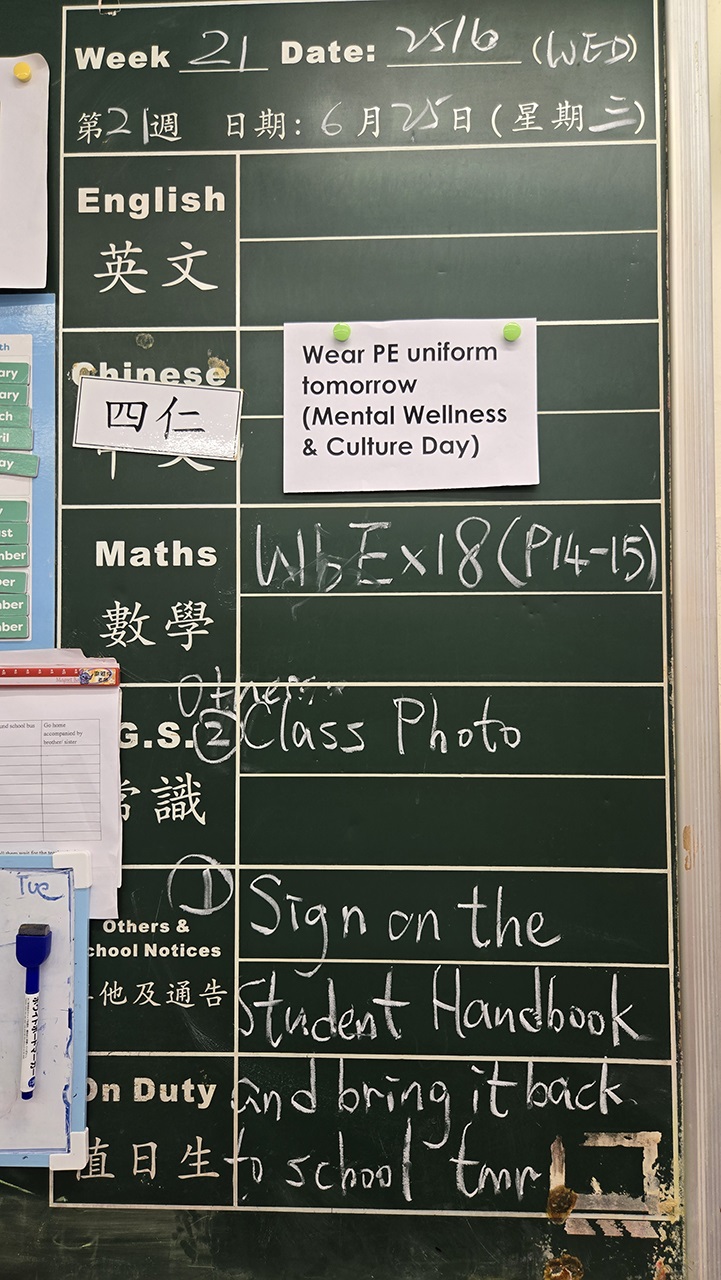 Week 21 Date: 25/6 (WED)
第21週 日期: 6月25日(星期三)
English
英文
Chinese
四仁
Wear PE uniform
tomorrow
(Mental Wellness
& Culture Day)
Maths
WbEx18(P14-15)
數學
Others
G.S. ②Class Photo
常識
① Sign on the
Others &
School Notices
他及通告
Student Handbook
On Duty
and bring it back
值日生
to school tmr
und school bus
Go home
accompanied by
brother/ sister
Tue